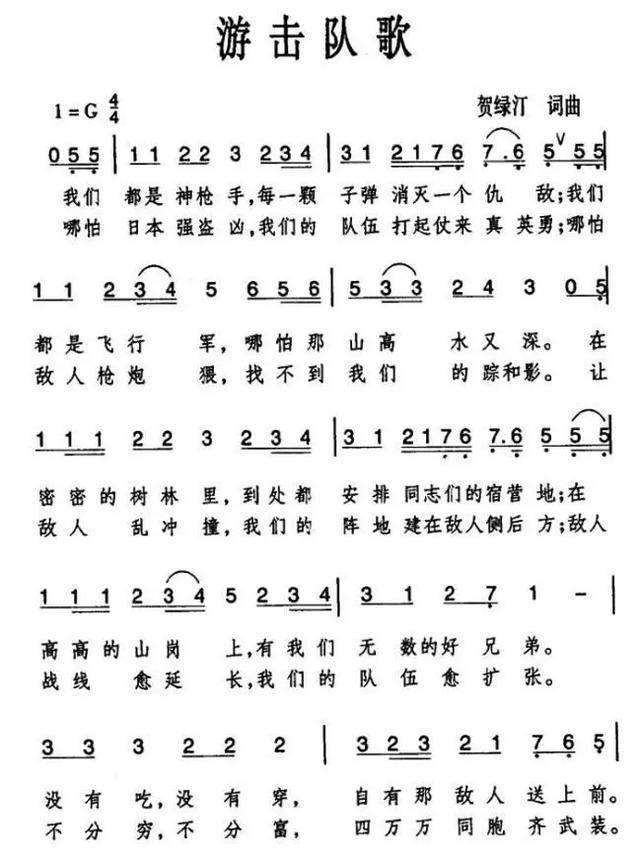 游击队歌
1=G 4/4
贺绿汀 词曲
0 5 5 | 1 1 2 2 3 2 3 4 | 3 1 2 1 7 6 7. 6 5 5 5 |
我们 都是 神枪 手,每一颗 子弹 消灭一个 仇 敌;我们
哪怕 日本 强盗 凶,我们的 队伍 打起仗来 真 英勇;哪怕
1 1 2 3 4 5 6 6 5 6 | 5 3 3 2 4 3 0 5 |
都是飞行 军,哪怕那山高 水又深。在
敌人枪炮 猥,找不到我们 的踪和影。让
1 1 1 2 2 3 2 3 4 | 3 1 2 1 7 6 7. 6 5 5 5 |
密密的树林 里,到处都 安排同志们的宿营 地;在
敌人 乱冲 撞,我们的 阵地 建在敌人侧后 方;敌人
1 1 1 2 3 4 5 2 3 4 | 3 1 2 7 1 - |
高高的山岗 上,有我们 无 数的好 兄弟。
战线 愈延 长,我们的 队 伍愈扩 张。
3 3 3 2 2 2 | 3 2 3 2 1 7 6 5 |
没有 吃,没有 穿, 自有那 敌人 送上前。
不分 穷,不分 富, 四万万 同胞 齐武装。